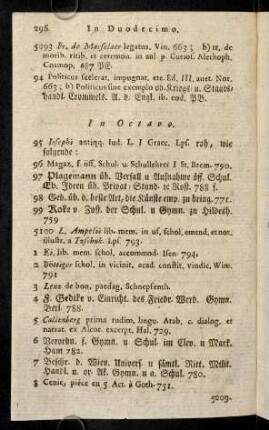 296 In Duodecimo.
5093 Fr. de Marselaer legatus. Vin. 663; b) tr. de
morib. ritib. et ceremon. in aul p Curios. Alethoph.
Cosmop. 687 PB.
94 Politicus scelerat. impugnat. etc. Ed. III. auct. Nor.
663; b) Politicus sine exemplo ob. Kriegs u. Staats-
handl Cromwels. A. d. Engl. ib. eod. PB.
In Octavo.
95 Iosephi antiqq. Iud. L. I Graec. Lps. roh, wie
folgende:
96 Magaz. f. öff. Schul. u Schullehrer I St. Brem. 790.
97 Plagemann üb. Verfall u Aufnahme öff. Schul.
Eb. Ideen üb. Privat: Stand. ꝛc Rost. 788 f.
98 Ged. üb. d. beste Art, die Künste emp. zu bring. 771.
99 Koke v. Zust. der Schul. u Gymn. zu Hildesh.
759
5100 L. Ampelii lib. mem. in us. schol. emend. et not.
illustr. a Tzschuk. Lps. 793.
1 Ei. lib. mem. schol. accommod. Isen. 794.
2 Böttiger schol. in vicinit. acad. constit. vindic. Wim.
791
3 Lenz de bon. paedag. Schnepfenth.
4 F. Gedike v. Einricht. des Friedr. Werd. Gymn.
Berl. 788.
5 Callenberg prima rudim. lingu. Arab. c. dialog. et
narrat. ex Alcor. excerpt. Hal. 729.
6 Verordn. f. Gymn. u Schul. im Clev. u Mark.
Ham 782.
7 Beschr. d. Wien. Univers. u sämtl. Ritt. Milit.
Handl. u. or. Ak. Gymn. u a. Schul. 780.
8 Cenie, piéce en 5 Act. à Goth. 751.
5009.